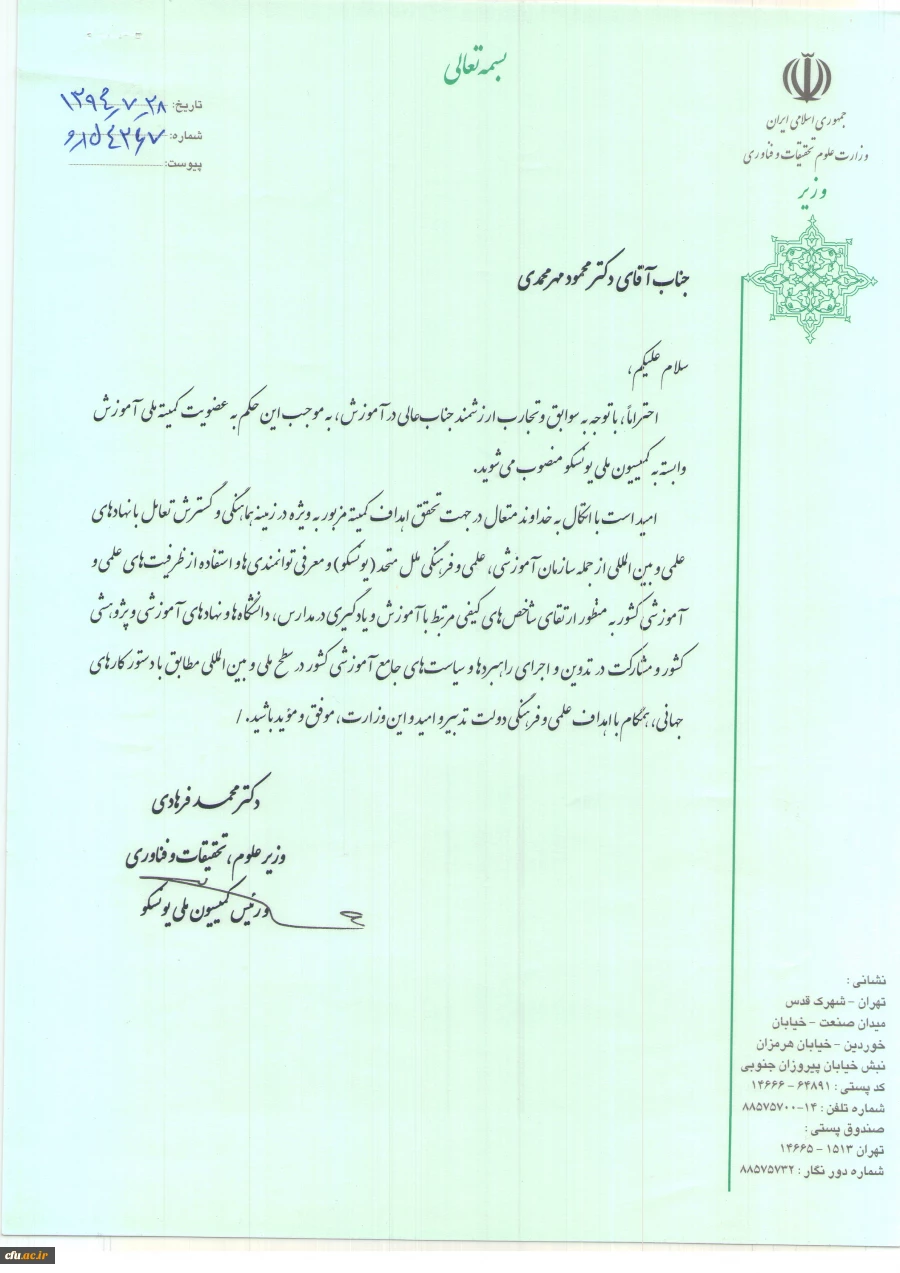 بسمه تعالی
جمهوری اسلامی ایران
وزارت علوم تحقیقات و فناوری
وزیر
تاریخ: ۱۳۹۴/۷/۲۸
شماره:
پیوست:
جناب آقای دکتر محمود مهرمحمدی
سلام علیکم،
احتراماً، با توجه به سوابق و تجارب ارزشمند جناب عالی در آموزش، به موجب این حکم به عضویت کمیته ملی آموزش
وابسته به کمیسیون ملی یونسکو منصوب می شوید.
امید است با اتکال به خداوند متعال در جهت تحقق اهداف کمیته مزبور به ویژه در زمینه هماهنگی و گسترش تعامل با نهادهای
علمی و بین المللی از جمله سازمان آموزشی، علمی و فرهنگی ملل متحد (یونسکو) و معرفی توانمندی ها و استفاده از ظرفیت های علمی و
آموزشی کشور به منظور ارتقای شاخص های کیفی مرتبط با آموزش و یادگیری در مدارس، دانشگاه ها و نهادهای آموزشی و پژوهشی
کشور و مشارکت در تدوین و اجرای راهبردها و سیاست های جامع آموزشی کشور در سطح ملی و بین المللی مطابق با دستور کارهای
جهانی، همگام با اهداف علمی و فرهنگی دولت تدبیر و امید و این وزارت، موفق و مؤید باشید. /
دکتر محمد فرهادی
وزیر علوم، تحقیقات و فناوری
و رئیس کمیسیون ملی یونسکو
نشانی:
تهران - شهرک قدس
میدان صنعت - خیابان
خوردین - خیابان هرمزان
نبش خیابان پیروزان جنوبی
کد پستی: ۶۴۸۹۱ - ۱۴۶۶۶
شماره تلفن: ۱۴-۸۸۵۷۵۷۰۰
صندوق پستی:
تهران ۱۵۱۳ - ۱۴۶۶۵
شماره دور نگار: ۸۸۵۷۵۷۳۲
cfu.ac.ir